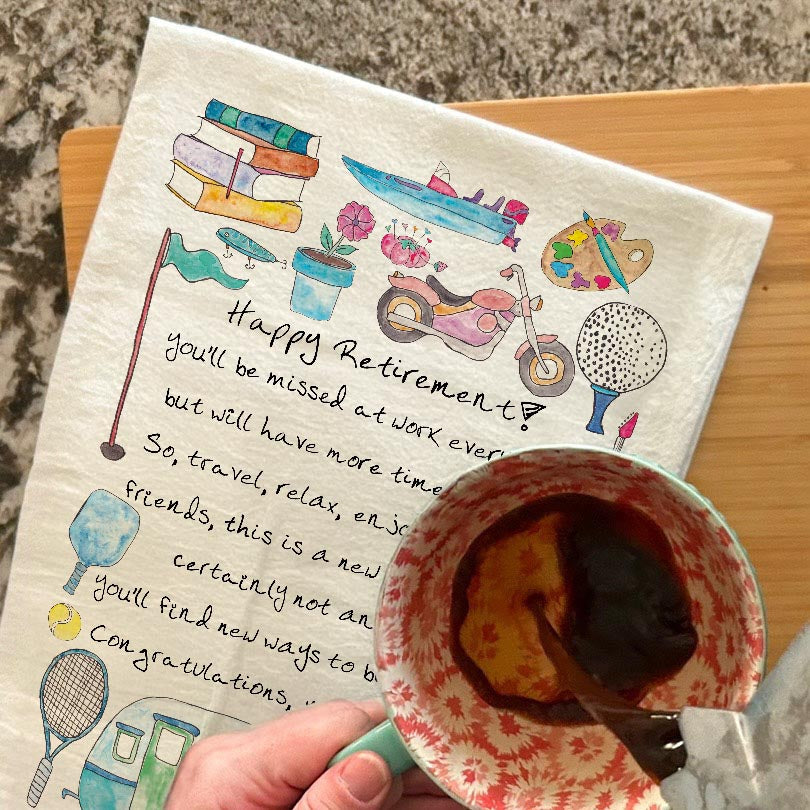 Happy Retirement!
You'll be missed at work
but will have more time
So, travel, relax,
friends, this is a new
certainly not an
You'll find new ways to
Congratulations,